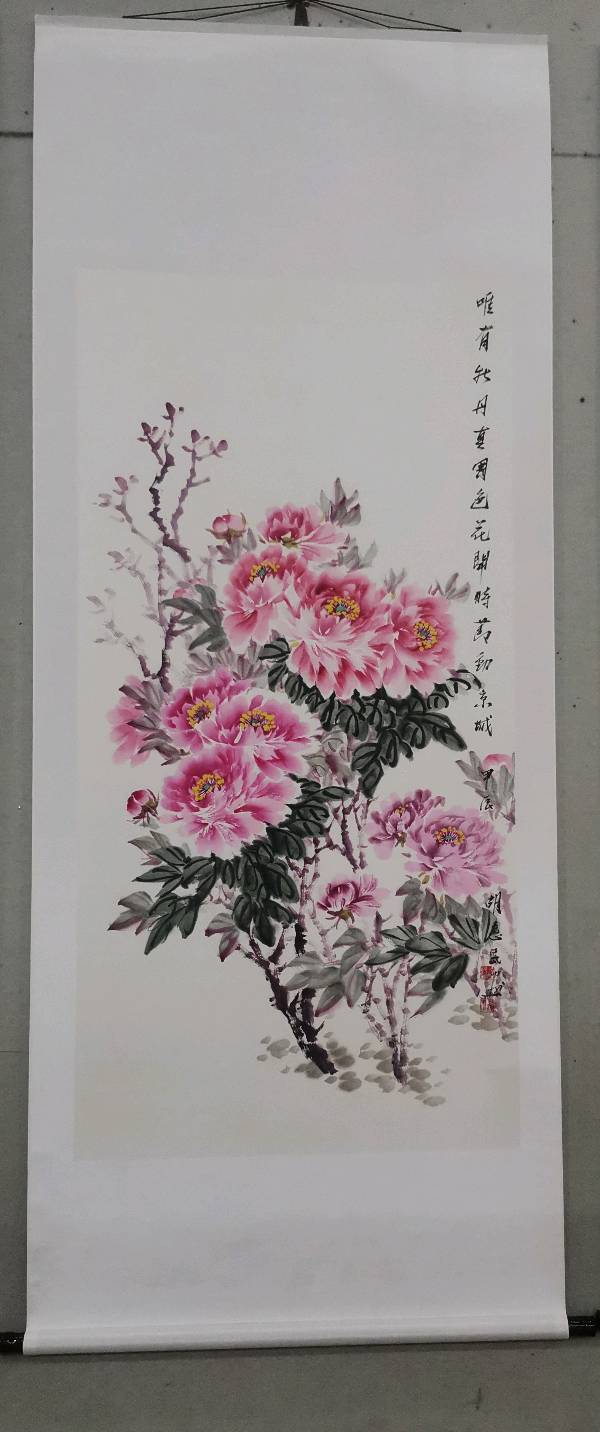 唯有牡丹真國色花開時節動京城
甲辰
胡惠民